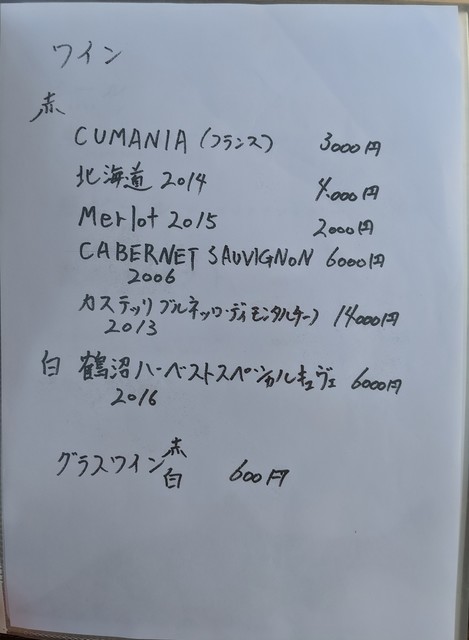 ワイン
赤
CUMANIA (フランス) 3000円
北海道 2014 4.000円
Merlot 2015 2000円
CABERNET SAUVIGNON 6000円
2006
カステッリ ブルネッロ・ディモンタルチーノ 14000円
2013
白 鶴沼ハーベストスペシャルキュヴェ 6000円
2016
グラスワイン 赤 白 600円